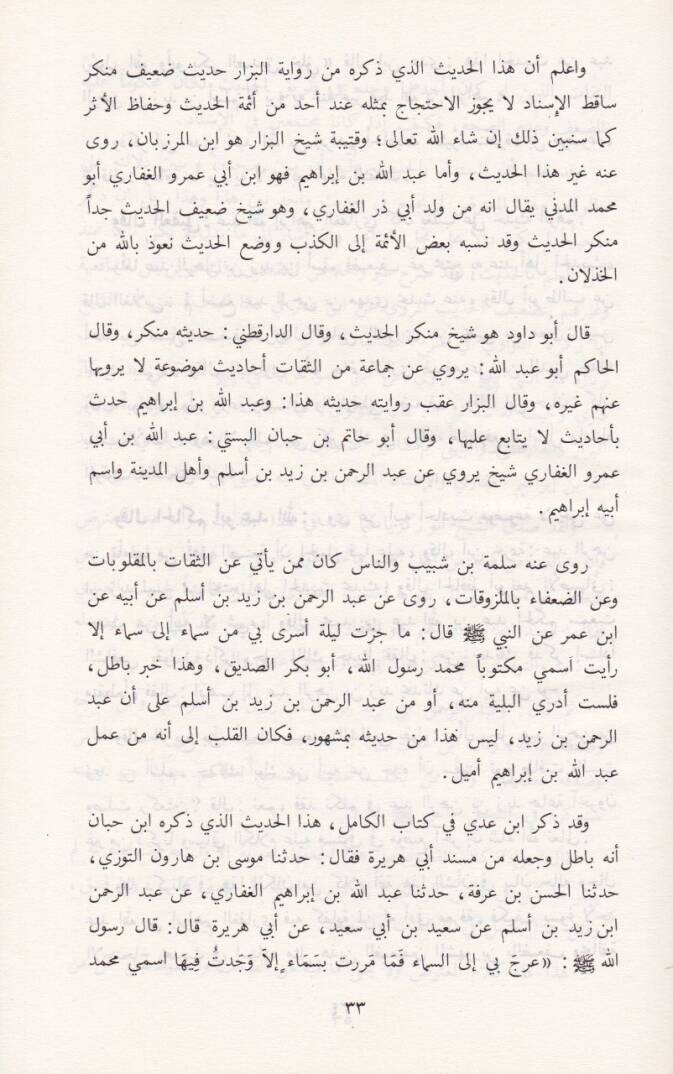 واعلم أن هذا الحديث الذي ذكره من رواية البزار حديث ضعيف منكر
ساقط الإسناد لا يجوز الاحتجاج بمثله عند أحد من أئمة الحديث وحفاظ الأثر
كما سنبين ذلك إن شاء الله تعالى؛ وقتيبة شيخ البزار هو ابن المرزبان، روى
عنه غير هذا الحديث، وأما عبد الله بن إبراهيم فهو ابن أبي عمرو الغفاري أبو
محمد المدني يقال انه من ولد أبي ذر الغفاري، وهو شيخ ضعيف الحديث جداً
منكر الحديث وقد نسبه بعض الأئمة إلى الكذب ووضع الحديث نعوذ بالله من
الخذلان.
قال أبو داود هو شيخ منكر الحديث، وقال الدارقطني: حديثه منكر، وقال
الحاكم أبو عبد الله: يروي عن جماعة من الثقات أحاديث موضوعة لا يرويها
عنهم غيره، وقال البزار عقب روايته حديثه هذا: وعبد الله بن إبراهيم حدث
بأحاديث لا يتابع عليها، وقال أبو حاتم بن حبان البستي: عبد الله بن أبي
عمرو الغفاري شيخ يروي عن عبد الرحمن بن زيد بن أسلم وأهل المدينة واسم
أبيه إبراهيم.
روى عنه سلمة بن شبيب والناس كان ممن يأتي عن الثقات بالمقلوبات
وعن الضعفاء بالملزوقات، روى عن عبد الرحمن بن زيد بن أسلم عن أبيه عن
ابن عمر عن النبي ﷺ قال: ما جزت ليلة أسرى بي من سماء إلى سماء إلا
رأيت اسمي مكتوباً محمد رسول الله، أبو بكر الصديق، وهذا خبر باطل،
فلست أدري البلية منه، أو من عبد الرحمن بن زيد بن أسلم على أن عبد
الرحمن بن زيد، ليس هذا من حديثه بمشهور، فكان القلب إلى أنه من عمل
عبد الله بن إبراهيم أميل.
وقد ذكر ابن عدي في كتاب الكامل، هذا الحديث الذي ذكره ابن حبان
أنه باطل وجعله من مسند أبي هريرة فقال: حدثنا موسى بن هارون التوزي،
حدثنا الحسن بن عرفة، حدثنا عبد الله بن إبراهيم الغفاري، عن عبد الرحمن
ابن زيد بن أسلم عن سعيد بن أبي سعيد، عن أبي هريرة قال: قال رسول
الله ﷺ: «عرجَ بي إلى السماء فَمَا مَررت بسَمَاءٍ إلاّ وَجَدتُ فِيهَا اسمي محمد
٣٣